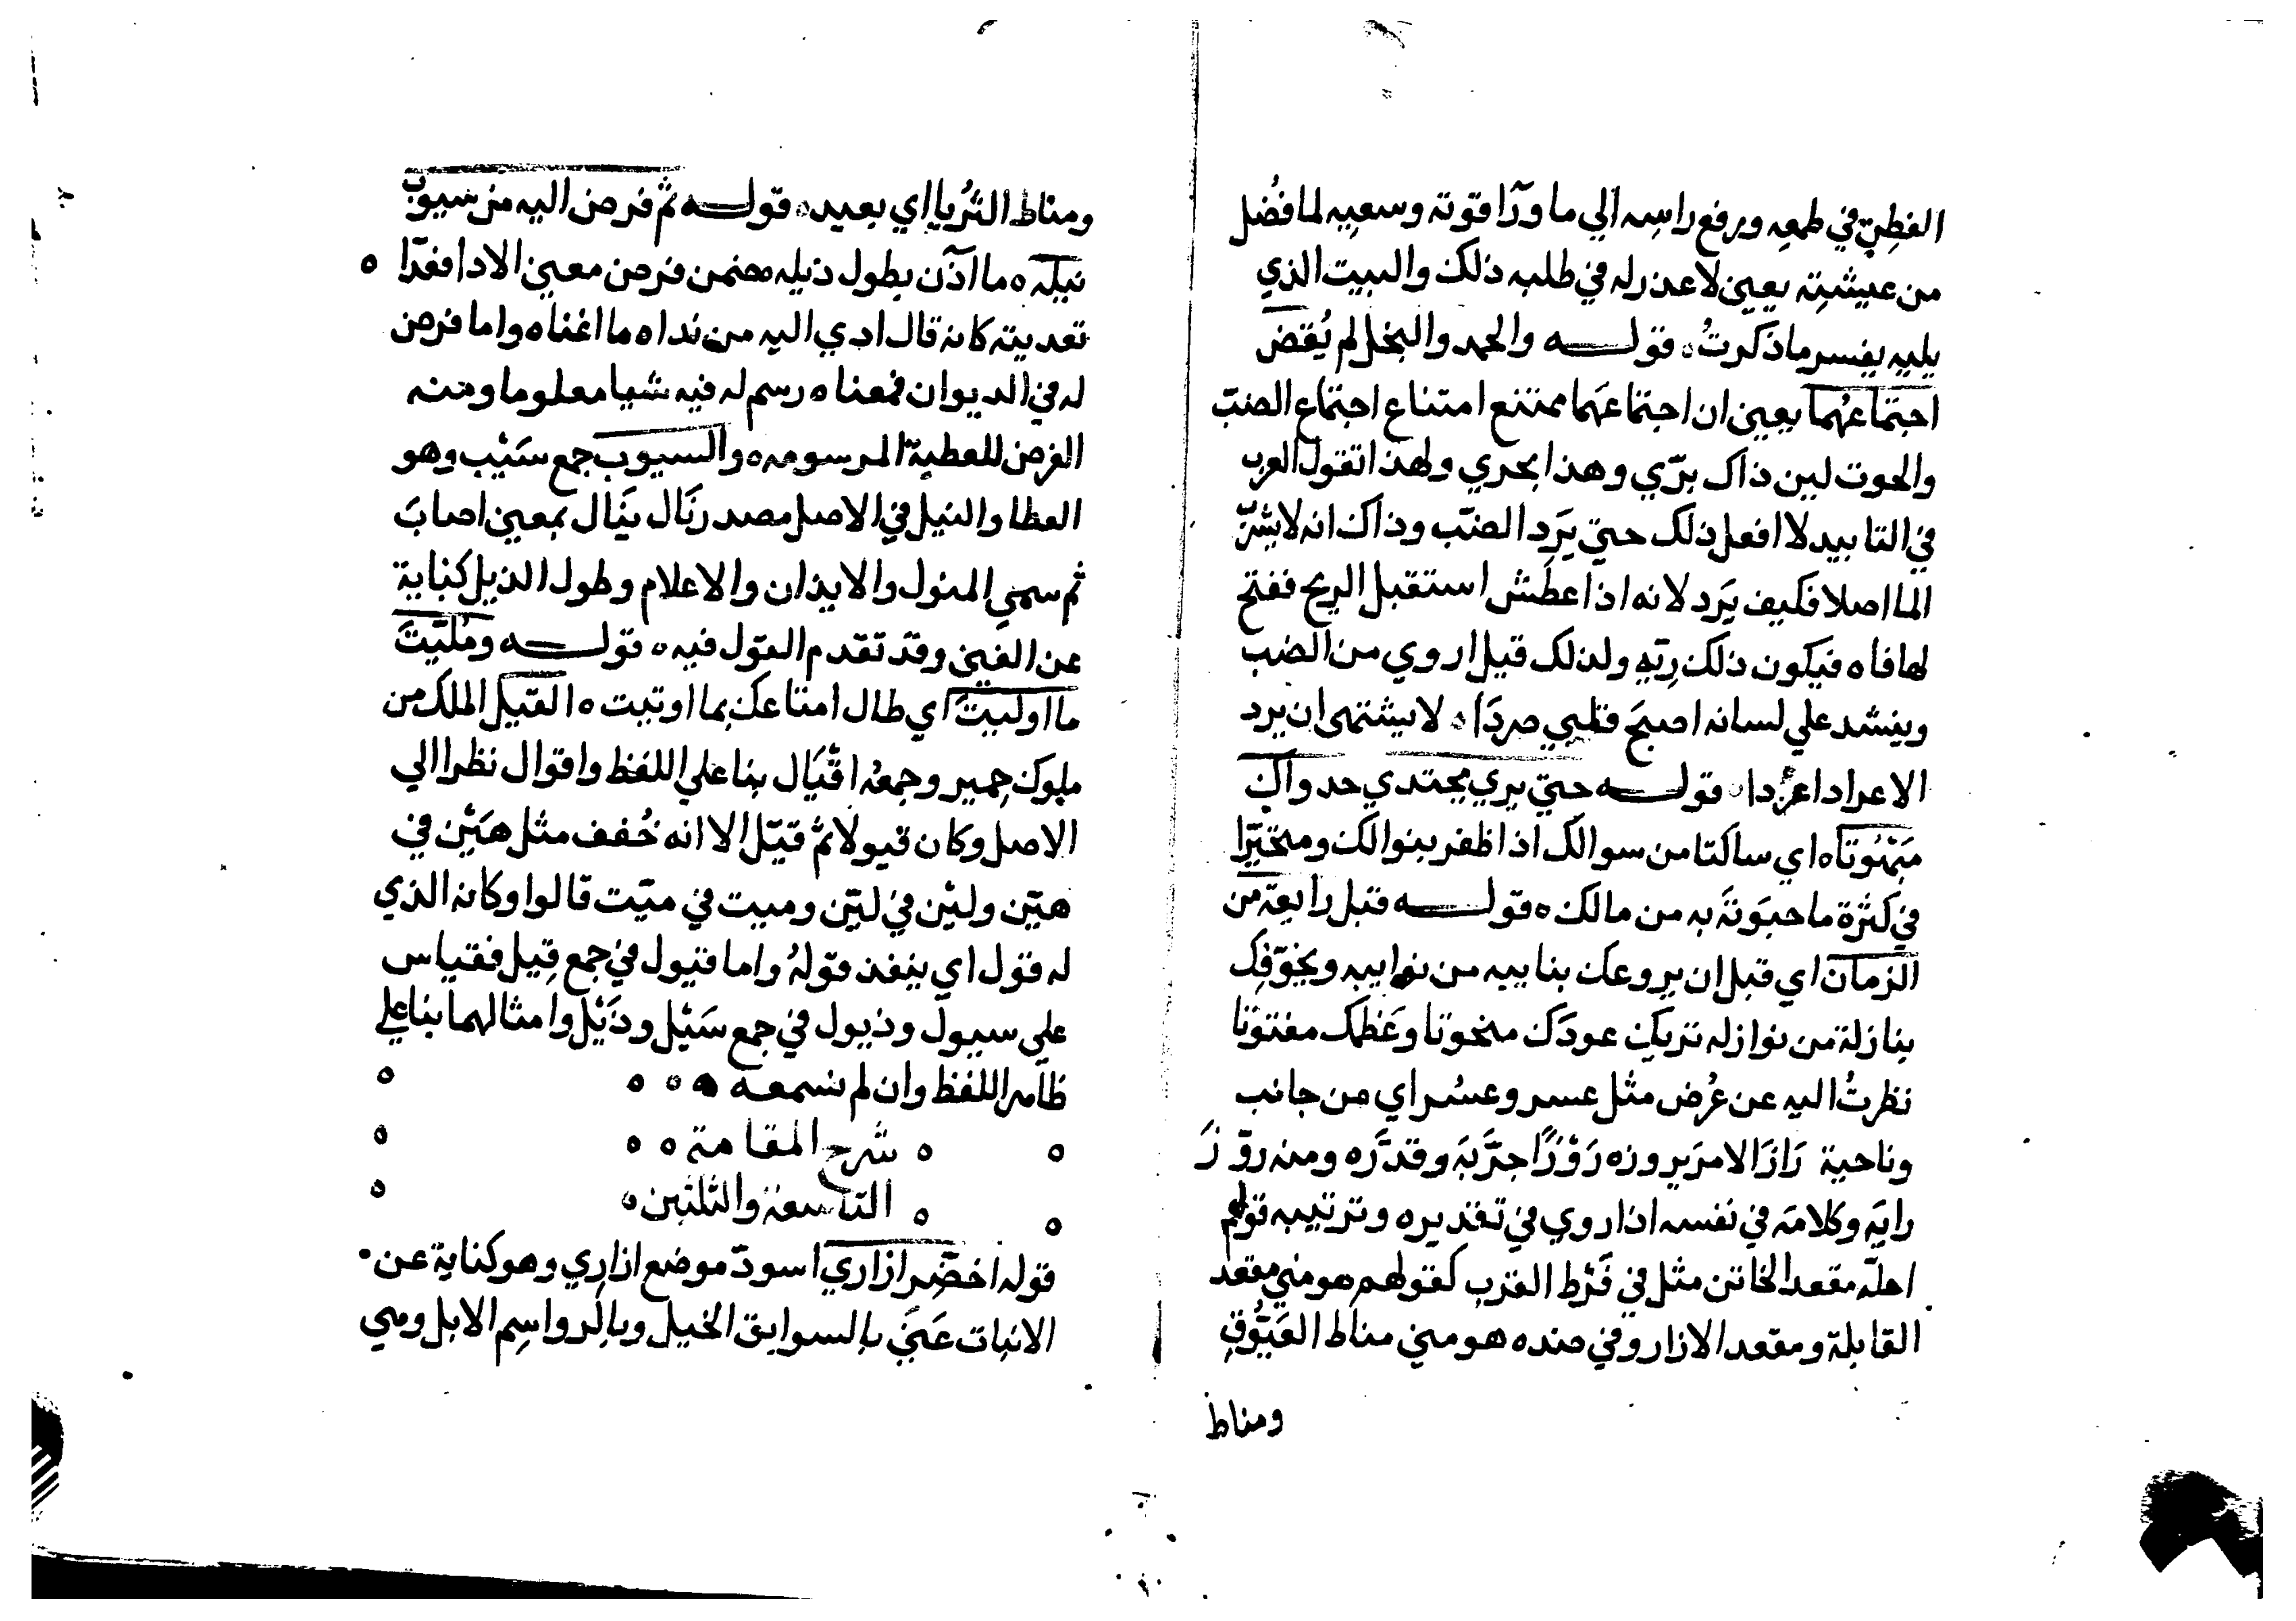 الفطِن في طمعِه ورفع راسِه الي ما ورآ قوته وسعيِه لما فضُل
من عيشتِه يعني لا عذر له في طلبه ذلك والبيت الذي
يليه يفسر ما ذكرتُ ٥ قولــه والحمد والبخل لم يُقضَ
اجتماعُهما يعني ان اجتماعَهما ممتنع امتناع اجتماع الضبّ
والحوت لين ذاك برّي وهذا بحري ولهذا تقول العرب
في التابيد لا افعل ذلك حتي يَرِد الضبّ وذاك انه لا يشربُ
الما اصلا فكيف يَرِد لانه اذا عطش استقبل الريح ففتح
لها فاه فيكون ذلك رِيّه ولذلك قيل اروي من الضب
وينشد علي لسانه اصبحَ قلبي صرِدَا ٥ لا يشتهي ان يرد
الا عرادا عَرِدا ٥ قولــه حتي يري مجتدي جدواك
مَبْهُوتا ٥ اي ساكتا من سوالك اذا ظفر بنوالك ومتحيّرا
في كثرة ما حبَوتَه به من مالك ٥ قولــه قبل رايعة من
الزمان اي قبل ان يروعك بنايبه من نوايبه ويخوّفك
بنازلة من نوازله تريك عودَك منحوتا وعَظمك مفتوتا
نظرتُ اليه عن عُرُض مثل عسر وعسُر اي من جانب
وناحية رَازَ الامرَ يروزه رَوْزًا جرَّبَه وقدَّره ومنه روّزَ
رايَه وكلامَه في نفسه اذا روي في تقديره وترتيبه قولهم
احلّه مقعد الخاتن مثل في فَرْط القرب كقولهم هو مني مقعد
القابلة ومقعد الازار وفي ضده هو مني مناط العَيُّوقِ
ومناط
ومناط الثُريا اي بعيد ٥ قولــه ثم فرض اليه من سيوب
نيله ٥ ما آذن بطول ذيله ضمن فرض معني الادا فعدّا ٥
تعديته كانه قال ادي اليه من نداه ما اغناه واما فرض
له في الديوان فمعناه رسم له فيه شيا معلوما ومنه
الفرض للعطية المرسومه ٥ والسيوب جمع سَيْب وهو
العطا والنيل في الاصل مصدر نَال ينَال بمعني اصابَ
ثم سمي المنول والايذان والاعلام وطول الذيل كناية
عن الغني وقد تقدم القول فيه ٥ قولــه ومُلّيتَ
ما اوليتَ اي طال امتاعك بما اوتيت ٥ القَيل الملك من
ملوك حِمير وجمعُه اقْيَال بنا علي اللفظ واقوال نظرا الي
الاصل وكان قيولا ثم قيّل الا انه خُفف مثل هَيْن في
هيّن وليْن في ليّن وميت في ميّت قالوا وكانه الذي
له قول اي ينفذ قولهُ واما قيول في جمع قِيل فقياس
علي سيول وذيول في جمع سَيْل وذَيْل وامثالهما بنا علي
ظاهر اللفظ وان لم نسمعه ٥ ٥ ٥ ٥
٥ ٥ شرح المقامة ٥ ٥ ٥
٥ ٥ التاسعة والثلثين ٥ ٥
قوله اخضّر ازاري اسودّ موضع ازاري وهو كناية عن
الانبات عَنَي بالسوابق الخيل وبالرواسِم الابل وهي